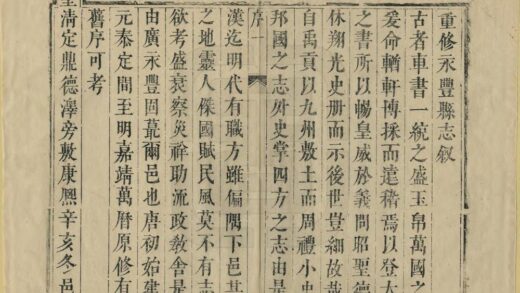 重修永豐縣志敘
古者車書一統之盛玉帛萬國之
爰命輶軒博採而遠稽焉以登大
之書所以暢皇威於義問昭聖德
休翔光史册而示後世豈細故哉
自禹貢以九州敷土而周禮小史
邦國之志外史掌四方之志由是
序一
漢迄明代有職方雖偏隅下邑其
之地靈人傑國賦民風莫不有志
欲考盛衰察災祥助流政敎舍是
由廣永豐固蕞爾邑也唐初始建
元泰定間至明嘉靖萬曆原修有
舊序可考
清定鼎德澤旁敷康熙辛亥冬邑